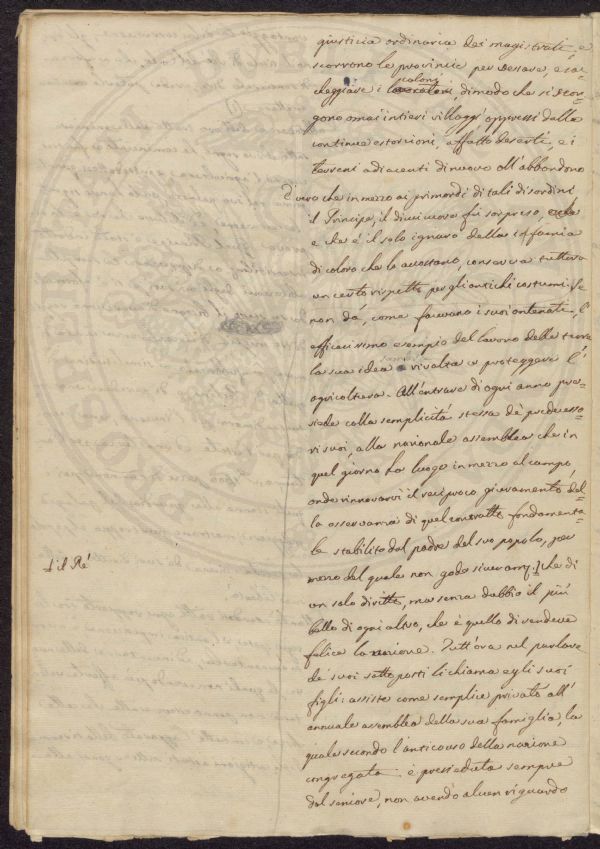 giustizia ordinaria dei magistrati e
scorrono le provincie per vessare, e sac-
coloni
cheggiare i dimodo che si scor-
gono omai intieri villaggi oppressi dalla
continue estorsioni, affatto deserti, e i
terreni adiacenti di nuovo all'abbandono
È vero che in mezzo ai primordi di tali disordini
il Principe, il di cui cuore fù sorpreso,
e che é il solo ignaro della infamia
di coloro che lo accostano, conserva tuttora
un certo rispetto per gli antichi costumi. Se
non dà, come facevano i suoi antenati, l'
efficacissimo esempio del lavoro delle terre
sembra
la sua idea rivolta a proteggere l'
agricoltura. All'entrare di ogni anno pre-
siede colla semplicità stessa de' predecesso-
ri suoi, alla nazionale assemblea che in
quel giorno ha luogo in mezzo al campo,
onde rinnovarvi il reciproco giuramento del-
la osservanza di quel contratto fondamenta-
le stabilito dal padre del suo popolo, per
mezzo del quale non gode che di
il Ré
un solo diritto, ma senza dubbio il più
bello di ogni altro, che è quello di rendere
felice la nazione. Tutt'ora nel parlare
de' suoi sottoposti li chiama egli suoi
figli: assiste come semplice privato all'
annuale assemblea della sua famiglia la
quale secondo l'antico uso della nazione
congregata é presieduta sempre
dal seniore, non avendo alcun riguardo